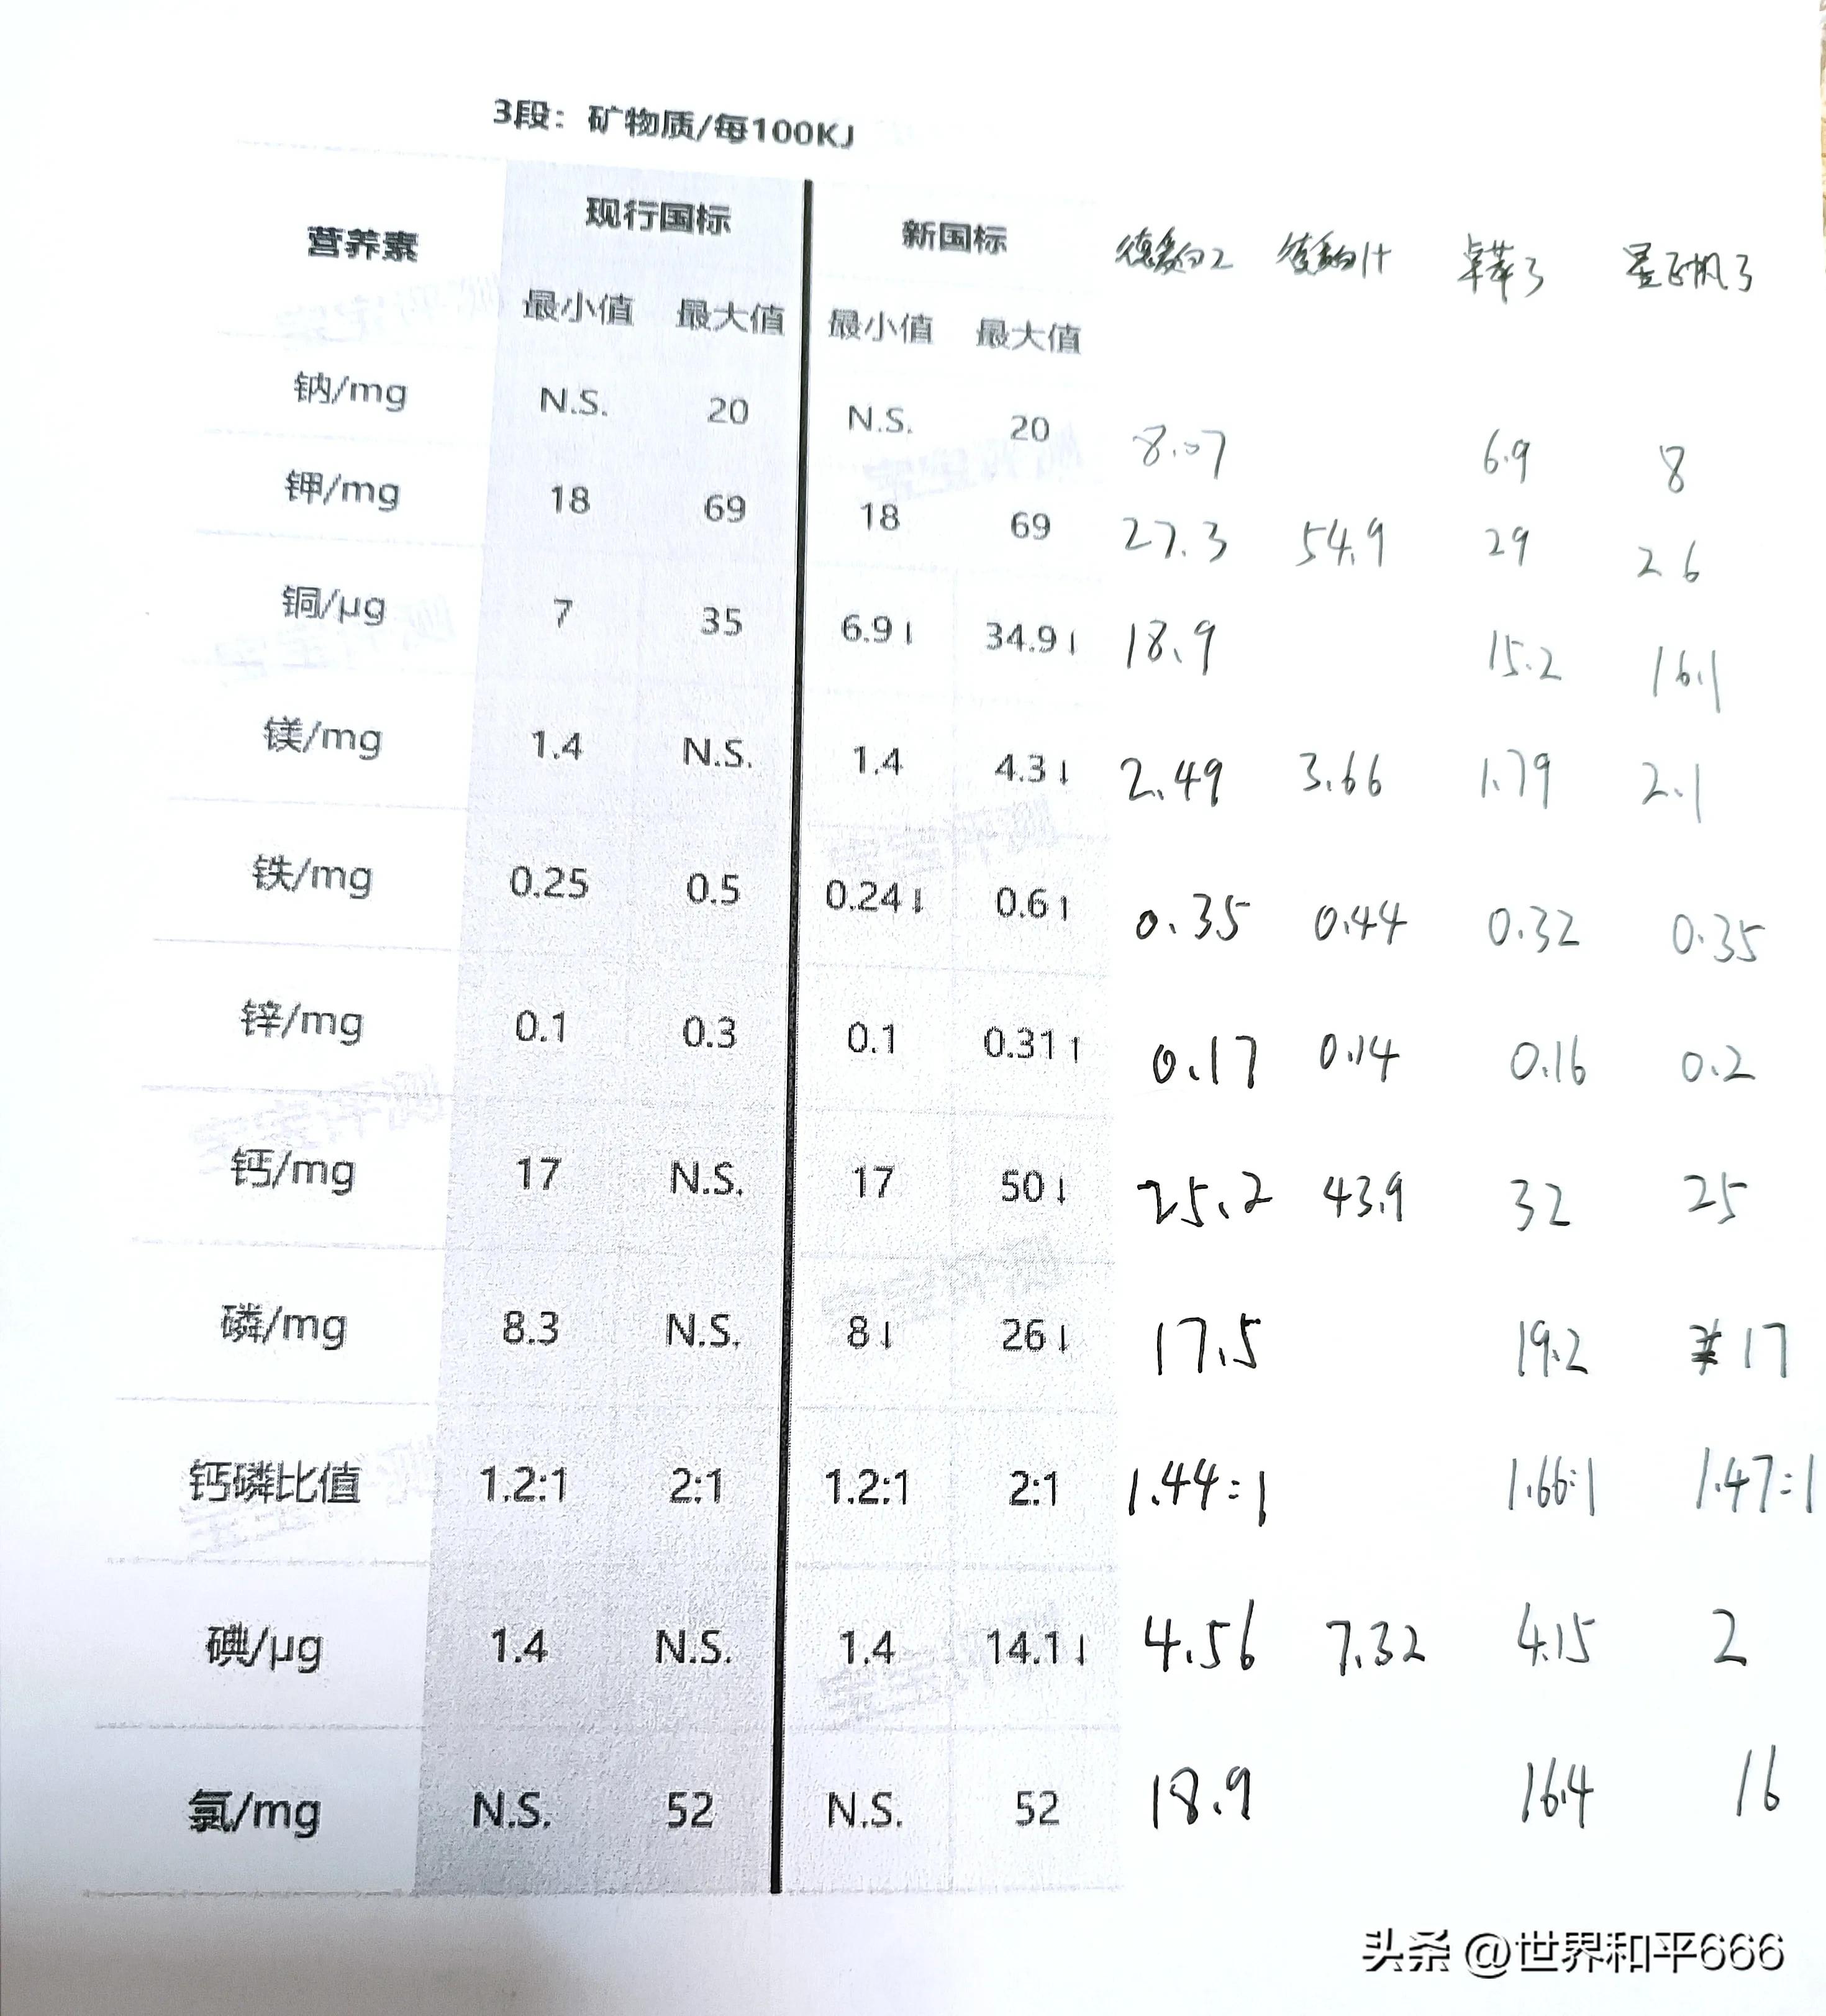 3段：矿物质/每100KJ
营养素 现行国标 新国标 德爱白2 德爱白1+ 卓萃3 星飞帆3
最小值 最大值 最小值 最大值
钠/mg N.S. 20 N.S. 20 8.07 6.9 8
钾/mg 18 69 18 69 27.3 54.9 29 26
铜/μg 7 35 6.9↓ 34.9↓ 18.9 15.2 16.1
镁/mg 1.4 N.S. 1.4 4.3↓ 2.49 3.66 1.79 2.1
铁/mg 0.25 0.5 0.24↓ 0.6↑ 0.35 0.44 0.32 0.35
锌/mg 0.1 0.3 0.1 0.31↑ 0.17 0.14 0.16 0.2
钙/mg 17 N.S. 17 50↓ 25.2 43.9 32 25
磷/mg 8.3 N.S. 8↓ 26↓ 17.5 19.2 17
钙磷比值 1.2:1 2:1 1.2:1 2:1 1.44:1 1.66:1 1.47:1
碘/μg 1.4 N.S. 1.4 14.1↓ 4.56 7.32 4.15 2
氯/mg N.S. 52 N.S. 52 18.9 16.4 16
头条 @世界和平666